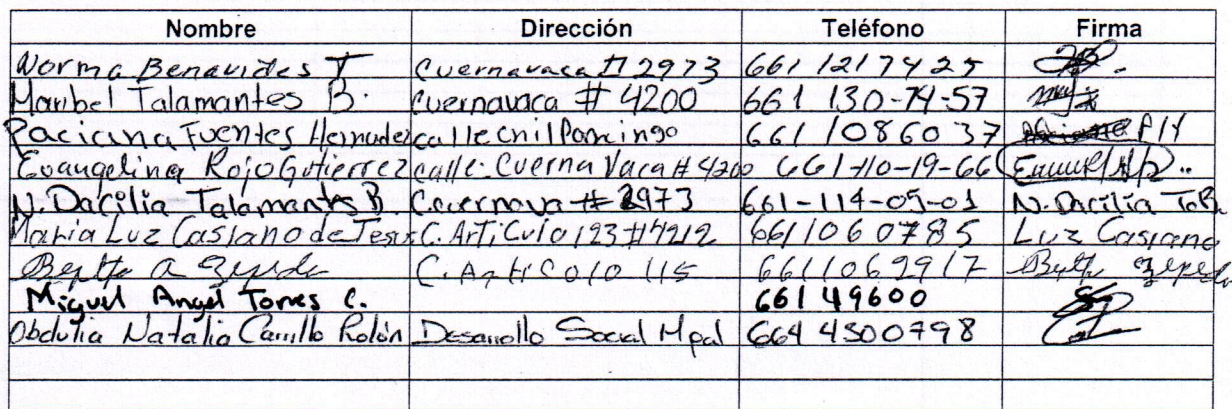 Nombre Dirección Teléfono Firma
Norma Benavides T Cuernavaca # 2973 661 1217425
Maribel Talamantes B. Cuernavaca # 4200 661 130-74-57
Paciana Fuentes Hernudez calle chilPancingo 661 1086037
Evangelina Rojo Gutierrez calle. Cuerna Vaca # 4200 661-110-19-66
N. Dacilia Talamantes B. Cuernava # 2973 661-114-05-01 N. Dacilia TaB.
Maria Luz Casiano de Jesus C. ArTiCulo 123 #4212 6611060785 Luz Casiano
Bertha A Zepeda C. ArtiColo 115 6611062917 Bertha Zepeda
Miguel Angel Torres C. 661 49600
Obdulia Natalia Carrillo Rolón Desarrollo Social Mpal 664 4500798